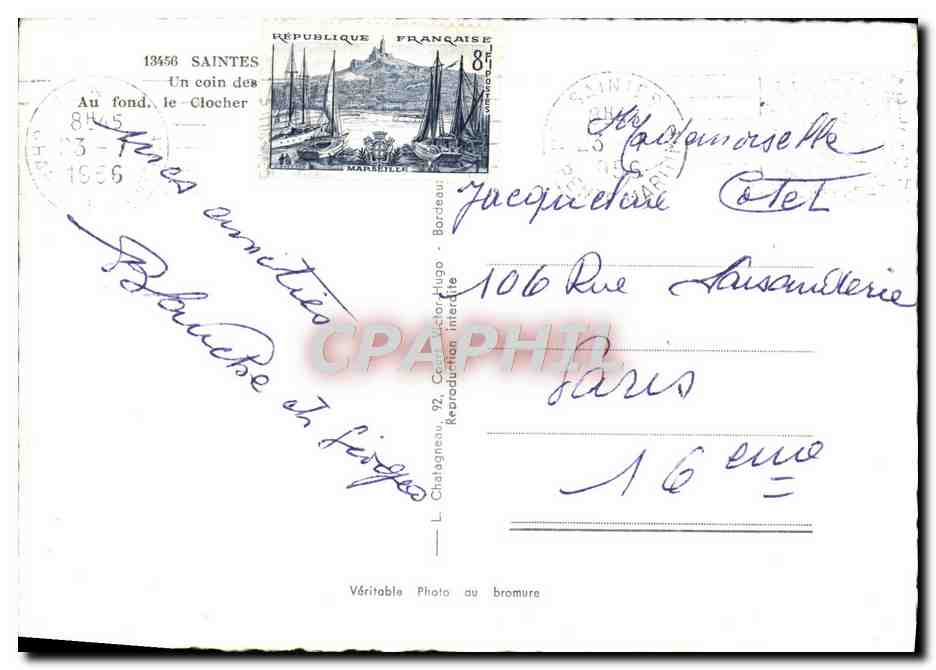 13456 SAINTES
Un coin des
Au fond. le Clocher
RÉPUBLIQUE FRANÇAISE
8F
POSTES
MARSEILLE
8H45
1956
SAINTES
Amitiés
Blanche et Georges
Mademoiselle
Jacqueline Cotel
106 Rue Faisanderie
Paris
16 eme
L. Chatagneau, 92, Cours Victor-Hugo - Bordeaux
Reproduction interdite
CPAPHIL
Véritable Photo au bromure